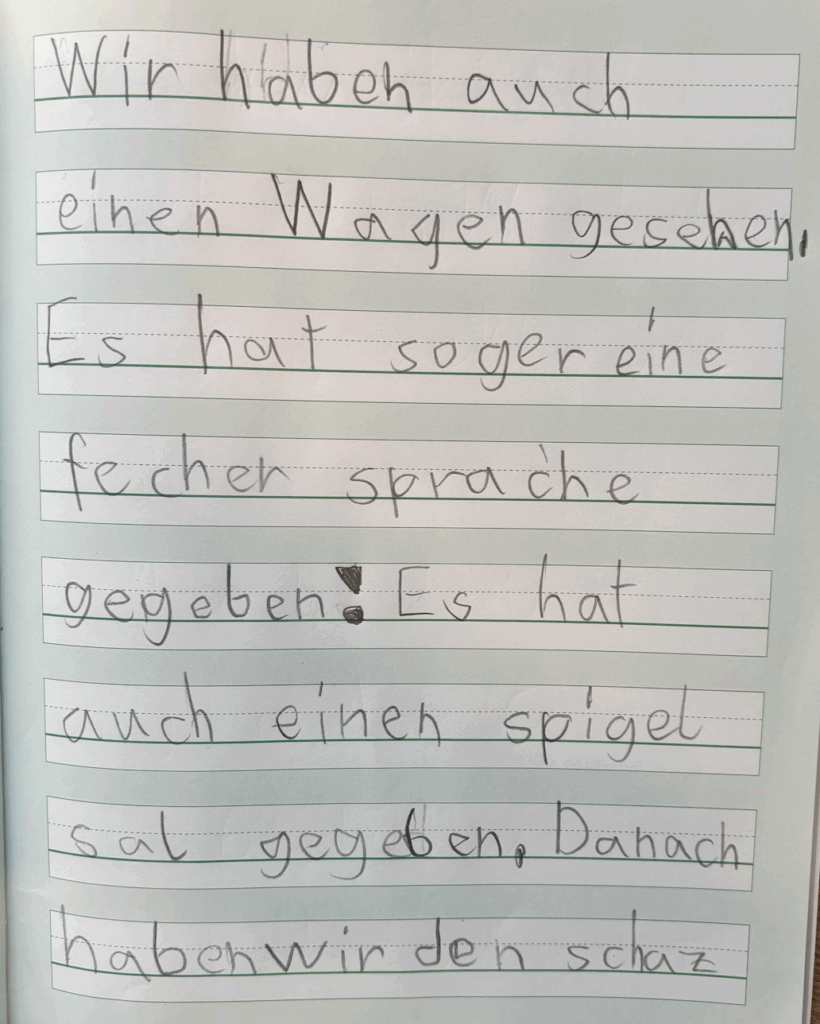 Wir haben auch
einen Wagen gesehen.
Es hat soger eine
fecher sprache
gegeben! Es hat
auch einen spigel
sal gegeben. Danach
habenwir den schaz